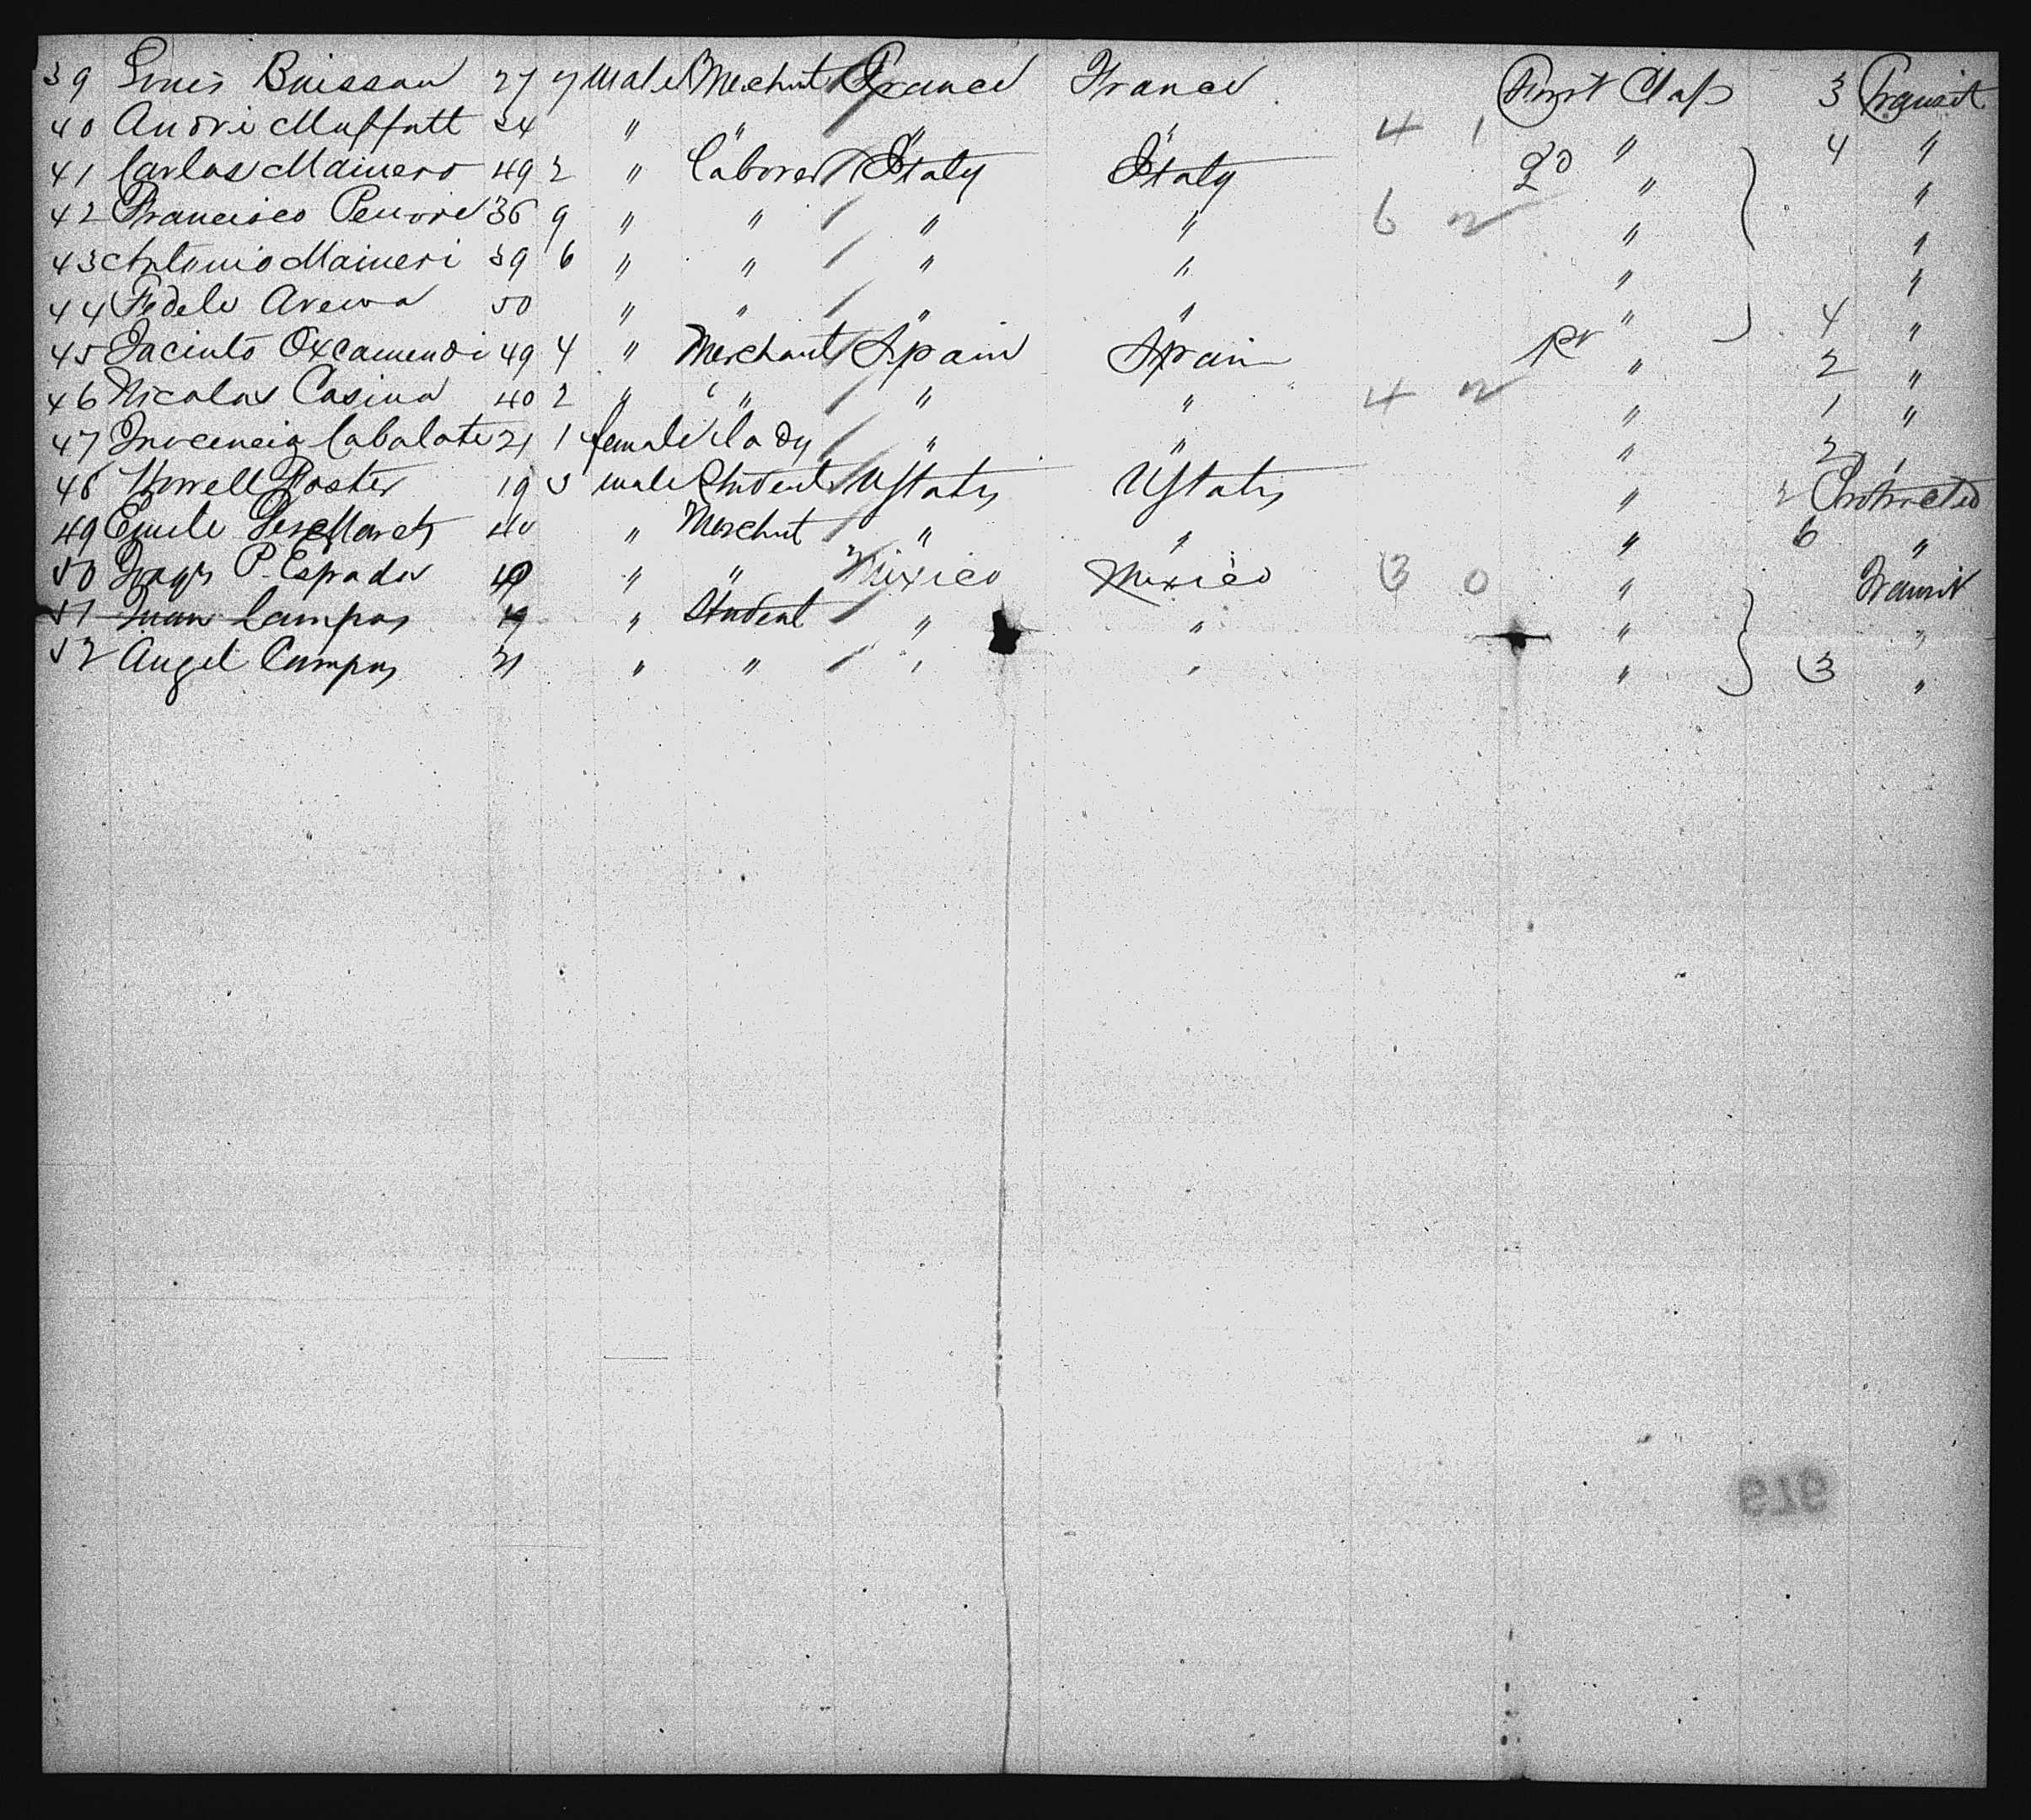 39 Louis Buissan 27 7 Male Mechnt France France First Class 3 Transit
40 Andri Muffatt 34 " " " " 4 1 " 4 "
41 Carlos Mainero 49 2 " Laborer Italy Italy 2d " "
42 Francisco 36 9 " " " " 6 2 " "
43 Antonio Maineri 39 6 " " " " " "
44 Fedele 50 " " " " " 4 "
45 Jacinto Oxcamendi 49 4 " Merchant Spain Spain 1st " 2 "
46 Nicolas Casina 40 2 " " " " 4 2 " 1 "
47 Inocencia Cabalate 21 1 female Lady " " " 2 "
48 Foster 19 5 male Student UStates UStates " 2 Protracted
49 Emile 40 " Merchnt " " " 6 "
50 P. Espada " " Mexico Mexico 3 0 " Transit
51 Juan Campos 19 " Student " " " "
52 Angel Campos 21 " " " " " 3 "
979